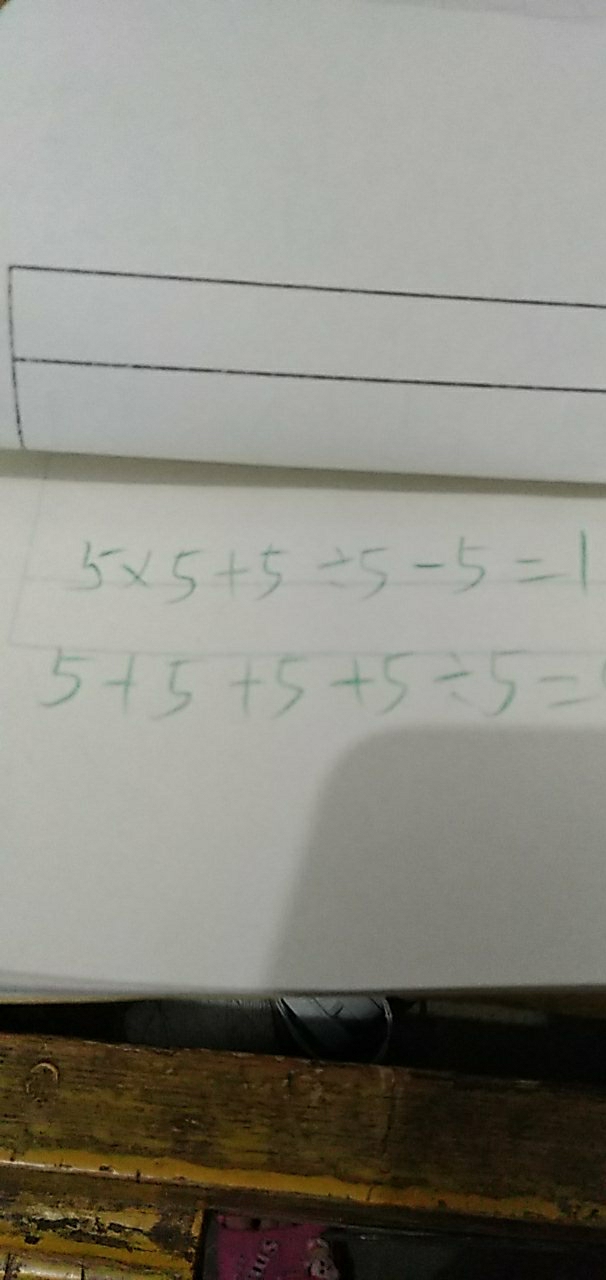 5×5+5÷5-5=1
5+5+5+5÷5=